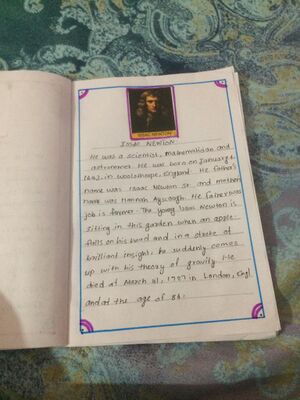 ISAAC NEWTON
ISSAC NEWTON
He was a scientist, Mathematician and
astronomer. He was born on January 4,
1643, in woolsthorpe, England. He father's
name was Isaac Newton Sr. and mother
name was Hannah Ayscough. He father was
job is farmer. The young Isaac Newton is
sitting in this garden when an apple
falls on his head and in a stroke of
brilliant insight, he suddenly comes
up with his theory of gravity. He
died at March 31, 1727 in London, Engl
and at the age of 84.